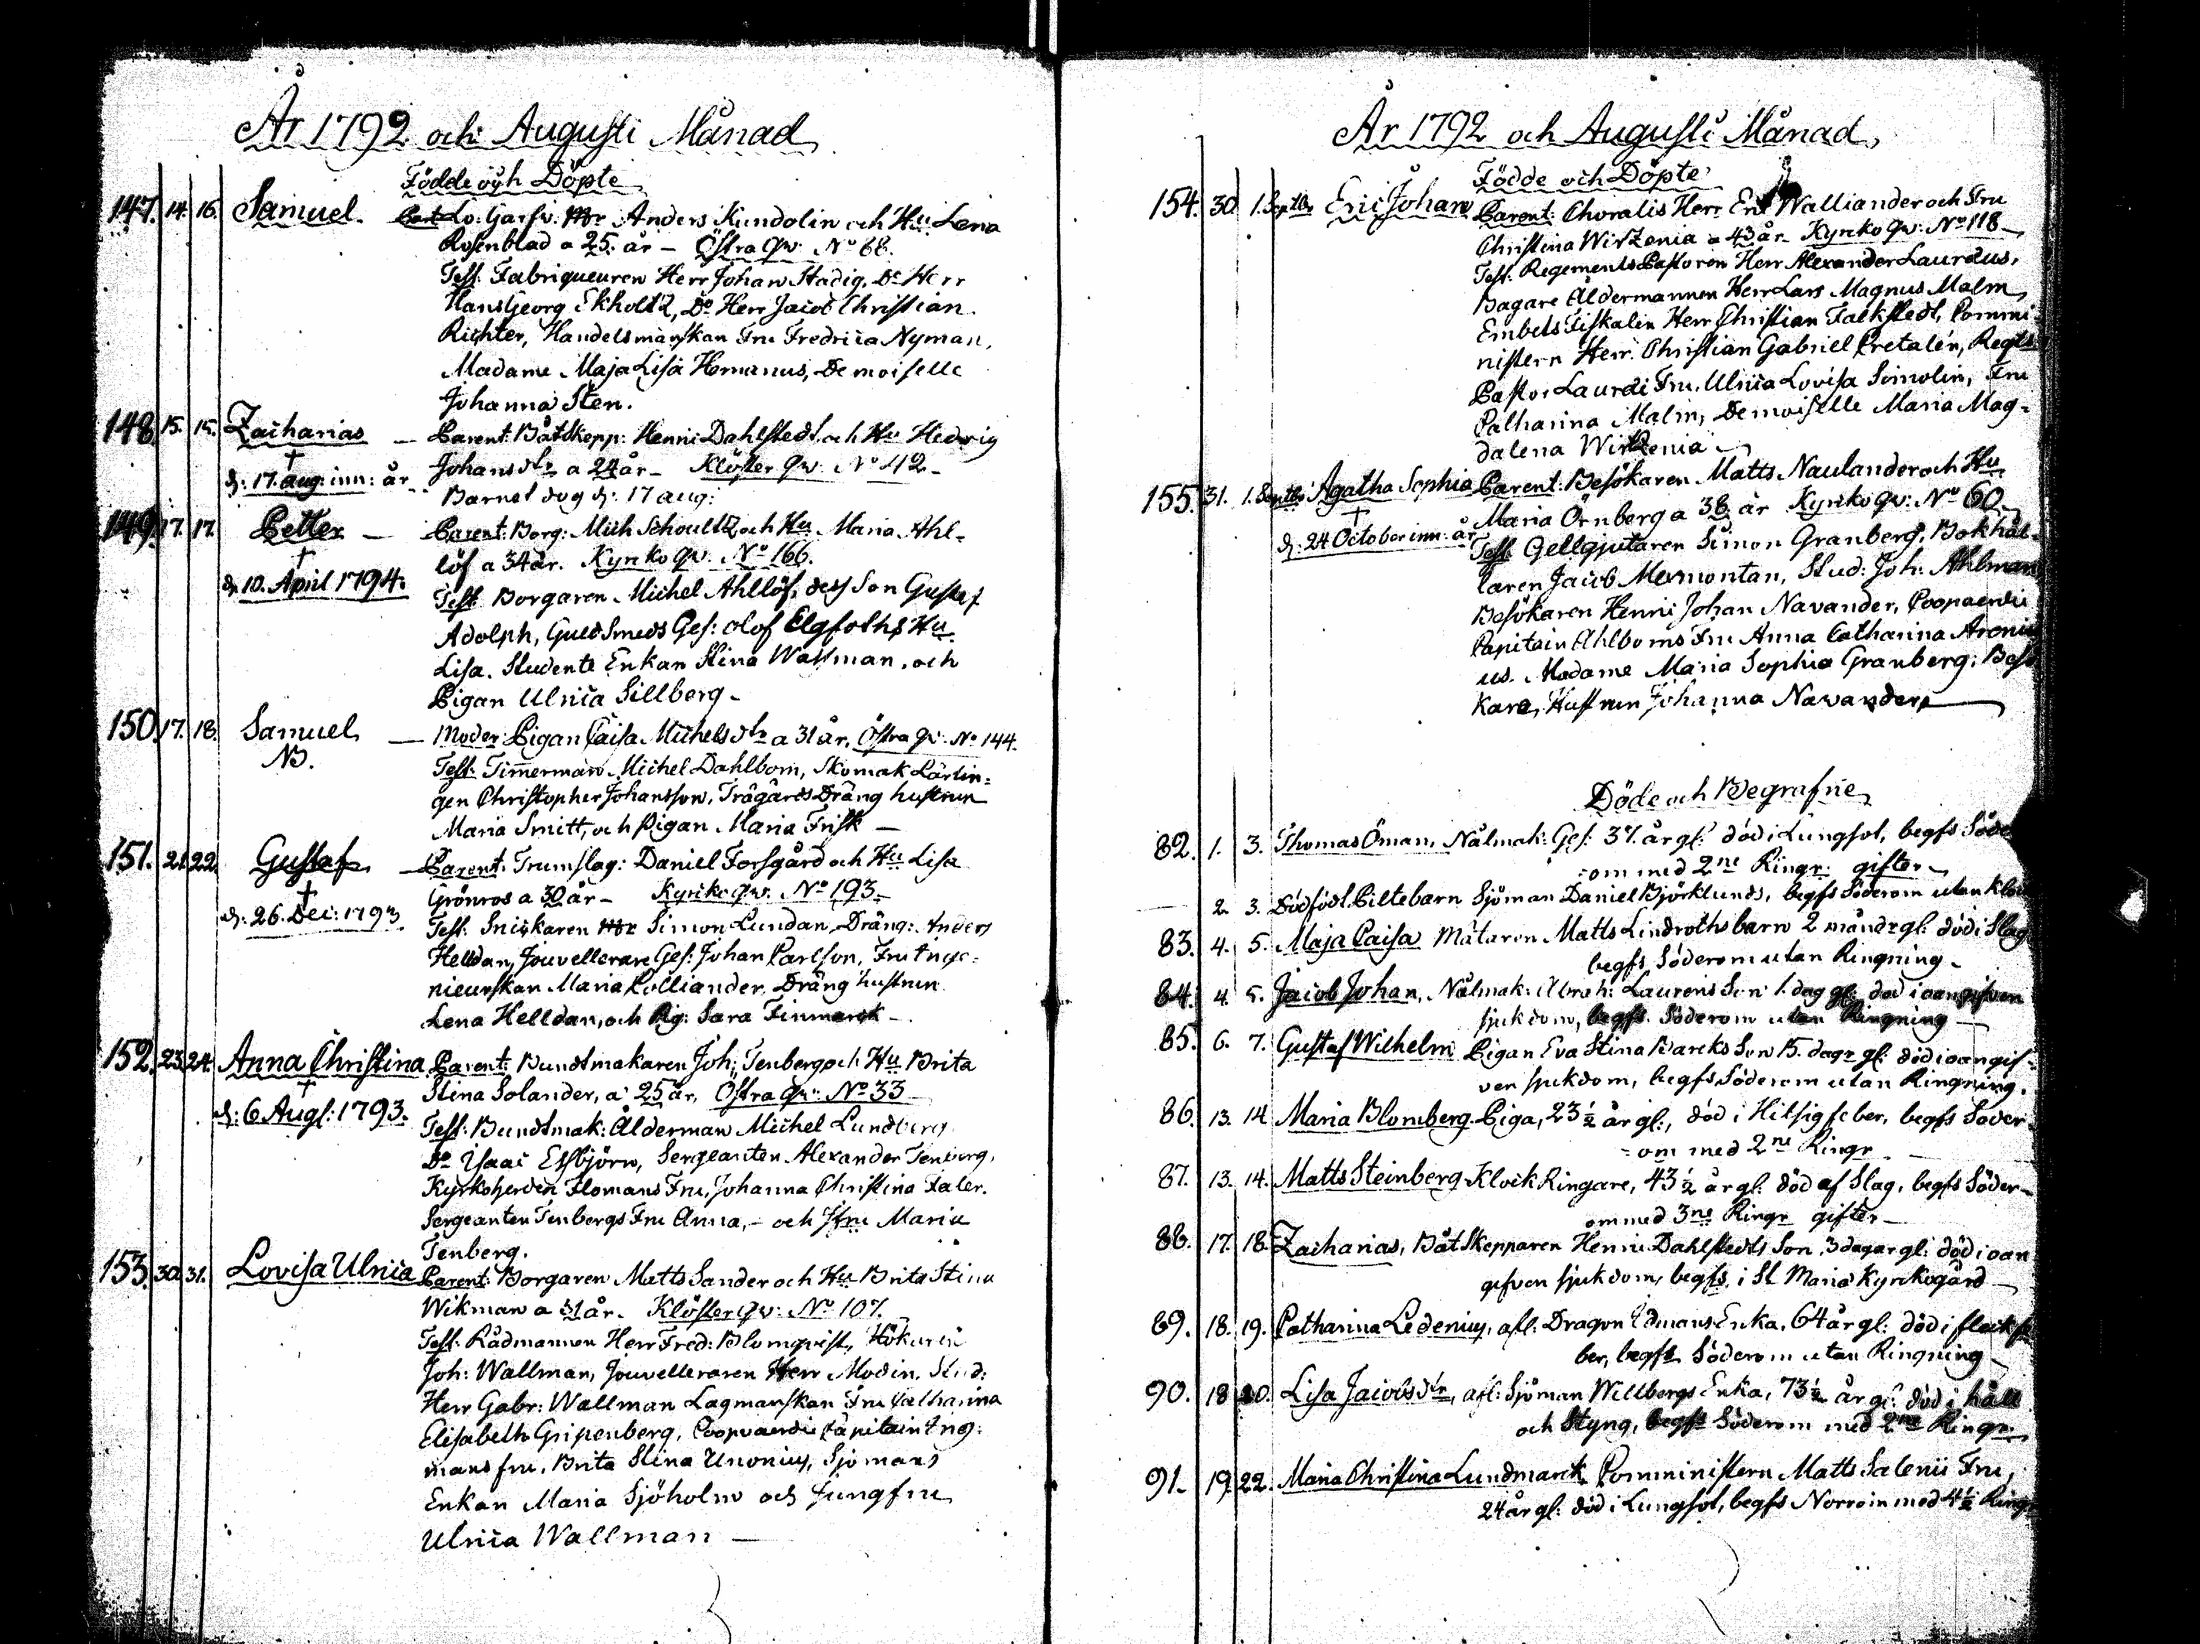 År 1792 och Augusti Månad
Födde och Döpte
147. 14. 16. Samuel. Lo: Garfv: Mr Anders Kundolin och Hu Lena
Rosenblad a 25. år – Östra Qv: No 68.
Test: Fabriqueuren Herr Johan Stadig, Do Herr
Hans Georg Ekholtz, Do Herr Jacob Christian
Richter, Handelsmanskan Fru Fredrica Nyman,
Madame Maja Lisa Homanus, Demoiselle
Johanna Sten.
148. 15. 15. Zacharias – Parent: Båtskepp: Henric Dahlstedt och Hu Hedvig
Johansdtr a 24 år – Klöster Qv: No 112 –
d: 17. aug: inn: år Barnet dog d: 17 aug:
149. 17. 17. Petter – Parent: Borg: Mich Schoultz och Hu Maria Ahl-
löf a 34 år. Kyrko qv: No 166.
d. 10. April 1794. Test: Borgaren Michel Ahllöf, dess Son Gustaf
Adolph, Guldsmeds Ges: Olof Elgfoths Hu
Lisa. Students Enkan Stina Wassman, och
Pigan Ulrica Sillberg –
150. 17. 18. Samuel – Moder Pigan Caisa Michelsdtr a 31 år, Östra qv: No 144.
NB. Test: Timmerman Michel Dahlbom, Skomak Lärlin-
gen Christopher Johansson, Trägårds Dräng hustrun
Maria Smitt, och Pigan Maria Frisk –
151. 21. 22. Gustaf – Parent: Trumslag: Daniel Forsgård och Hu Lisa
Grönros a 30 år – Kyrko qv: No 193 –
d: 26. Dec: 1793. Test: Snickaren Mr Simon Lundan, Dräng: Anders
Helldan, Jouvellerare Ges: Johan Carlson, Fru Inge-
nieurskan Maria Kolliander, Dräng hustrun
Lena Helldan, och Pig: Sara Finmarck –
152. 23. 24. Anna Christina Parent: Buntmakaren Joh: Tenberg och Hu Brita
Stina Solander, a 25 år, Östra qv: No 33
d: 6 Aug: 1793. Test: Bundtmak: Ålderman Michel Lundberg
Do Isaac Essbjörn, Sergeanten Alexander Tenberg,
Kyrkoherden Flomans Fru, Johanna Christina Faler.
Sergeanten Tenbergs Fru Anna, – och Jfru Maria
Tenberg.
153. 30. 31. Lovisa Ulrica Parent: Borgaren Matts Sander och Hu Brita Stina
Wikman a 31 år. Klöster qv: No 107.
Test: Rådmannen Herr Fred: Blomqvist, Hökaren
Joh: Wallman, Jouvelleraren Herr Modin, Stud:
Herr Gabr: Wallman Lagmanskan Fru Catharina
Elisabeth Gripenberg, Coopvaerdie Capitain Eng-
mans fru, Brita Stina Unonius, Sjömans
Enkan Maria Sjöholm och Jungfru
Ulrica Wallman –
År 1792 och Augusti Månad,
Födde och Döpte
154. 30. 1. Septbr Eric Johan Parent: Choralis Herr Eric Walliander och Fru
Christina Wirzenia a 43 år – Kyrko Qv: No 118 –
Test: Regements Pastoren Herr Alexander Lauræus,
Bagare Åldermannen Herr Lars Magnus Malm,
Embets Fiskalen Herr Christian Falkstedt, Commi-
nistern Herr Christian Gabriel Cretalén, Regts
Pastor Lauræi Fru, Ulrica Lovisa Simolin, Fru
Catharina Malm, Demoiselle Maria Mag-
dalena Wirzenia –
155. 31. 1. Septbr Agatha Sophia Parent: Besökaren Matts Naulander och Hu
Maria Örnberg a 38 år Kyrko qv: No 60 –
d: 24 October inn: år Test: Gellgjutaren Simon Granberg, Bokhål-
laren Jacob Mermontan, Stud: Joh: Ahlman
Besökaren Henric Johan Navander, Coopaerdie
Capitain Ahlboms Fru Anna Catharina Aroni-
us. Madame Maria Sophia Granberg, Besö-
kare, Hustrun Johanna Navander,
Döde och Begrafne
82. 1. 3. Thomas Öman, Nålmak: Ges: 37. år gl: död i Lungsot, begfs Söder
-om med 2ne Ringr: gifter –
– 2. 3. Dödfödt Piltebarn Sjöman Daniel Björklunds, begfs Söderom utan
83. 4. 5. Maja Caisa Mätaren Matts Lindroths barn 2 månadr gl: död i Slag
begfs Söderom utan Ringning –
84. 4. 5. Jacob Johan, Nålmak: Abrah: Laurens Son 1. dag gl: död i oangifven
sjukdom, begfs Söderom utan Ringning –
85. 6. 7. Gustaf Wilhelm Pigan Eva Stina Barcks Son 15. dagr gl: död i oangif-
ven sjukdom, begfs Söderom utan Ringning.
86. 13. 14. Maria Blomberg Piga, 23 1/2 år gl:, död i Hitsig feber, begfs Söder-
-om med 2ne Ringr –
87. 13. 14. Matts Steinberg Klock Ringare, 43 1/2 år gl: död af Slag, begfs Söder-
om med 3ne Ringr gifter –
88. 17. 18. Zacharias, Båtskepparen Henric Dahlstedts Son, 3 dagar gl: död i oan
gifven sjukdom, begfs i St Mariæ Kyrkogård –
89. 18. 19. Catharina Ledenius, afl: Dragon Edmans Enka, 64 år gl: död i fleckfe
ber, begfs Söderom utan Ringning –
90. 18. 20. Lisa Jacobsdtr, afl: Sjöman Wellbergs Enka, 73 1/2 år gl: död i håll
och Styng, begfs Söderom med 2ne Ringr.
91. 19. 22. Maria Christina Lundmarck Comministern Matts Salenii Fru,
24 år gl: död i Lungsot, begfs Norrom med 4 1/2 Ring